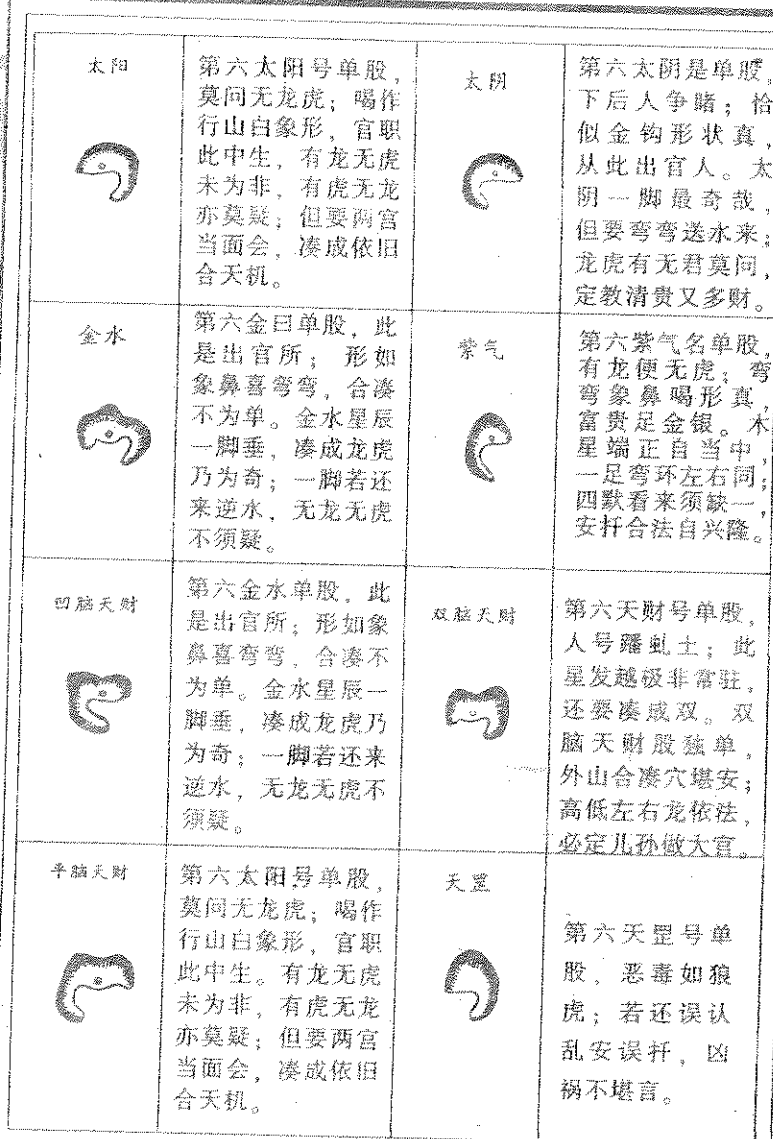 太阳
第六太阳号单股，
莫问无龙虎；喝作
行山白象形，官职
此中生，有龙无虎
未为非，有虎无龙
亦莫疑；但要两宫
当面会，凑成依旧
合天机。
太阴
第六太阴是单股，
下后人争睹；恰
似金钩形状真，
从此出官人。太
阴一脚最奇哉，
但要弯弯送水来；
龙虎有无君莫问，
定教清贵又多财。
金水
第六金曰单股，此
是出官所；形如
象鼻喜弯弯，合凑
不为单。金水星辰
一脚垂，凑成龙虎
乃为奇；一脚若还
来逆水，无龙无虎
不须疑。
紫气
第六紫气名单股，
有龙便无虎；弯
弯象鼻喝形真，
富贵足金银。木
星端正自当中，
一足弯环左右同；
四默看来须缺一，
安扦合法自兴隆。
凹脑天财
第六金水单股，此
是出官所；形如象
鼻喜弯弯，合凑不
为单。金水星辰一
脚垂，凑成龙虎乃
为奇；一脚若还来
逆水，无龙无虎不
须疑。
双脑天财
第六天财号单股，
人号蹯虬土；此
星发越极非常驻，
还要凑成双。双
脑天财股独单，
外山合凑穴堪安；
高低左右龙依法，
必定儿孙做大官。
平脑天财
第六太阳号单股，
莫问无龙虎；喝作
行山白象形，官职
此中生。有龙无虎
未为非，有虎无龙
亦莫疑；但要两宫
当面会，凑成依旧
合天机。
天罡
第六天罡号单
股，恶毒如狼
虎；若还误认
乱安误扦，凶
祸不堪言。